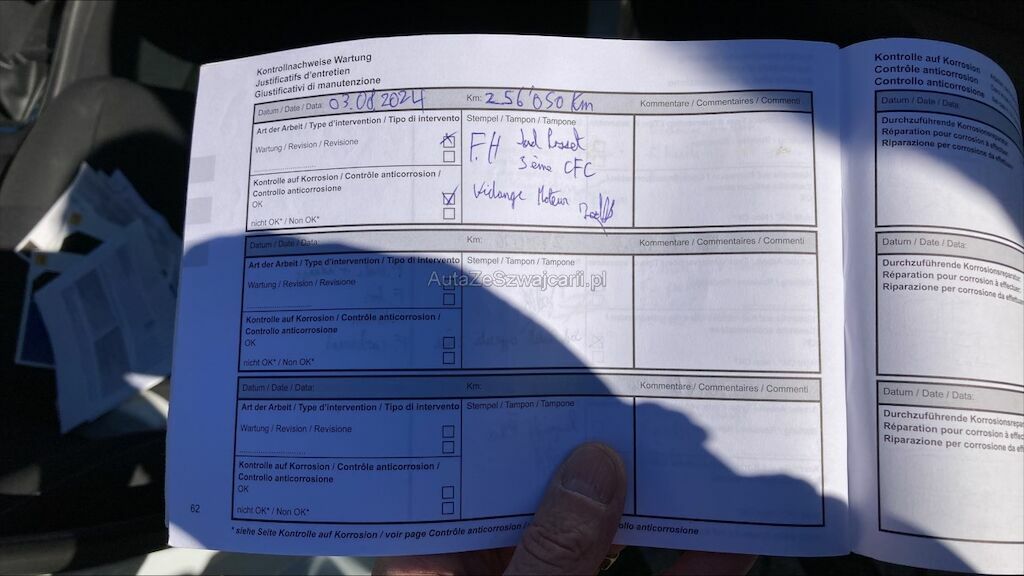 Kontrollnachweise Wartung
Justificatifs d'entretien
Giustificativi di manutenzione
Datum / Date / Data: 03.08.2024 Km: 256'050 Km Kommentare / Commentaires / Commenti
Art der Arbeit / Type d'intervention / Tipo di intervento
Wartung / Revision / Revisione
Stempel / Tampon / Tampone
F.H
3ème CFC
Vidange Moteur
Kontrolle auf Korrosion / Contrôle anticorrosion /
Controllo anticorrosione
OK
nicht OK* / Non OK*
Datum / Date / Data: Km: Kommentare / Commentaires / Commenti
Art der Arbeit / Type d'intervention / Tipo di intervento
Wartung / Revision / Revisione
Stempel / Tampon / Tampone
AutaZeSzwajcarii.pl
Kontrolle auf Korrosion / Contrôle anticorrosion /
Controllo anticorrosione
OK
nicht OK* / Non OK*
Datum / Date / Data: Km: Kommentare / Commentaires / Commenti
Art der Arbeit / Type d'intervention / Tipo di intervento
Wartung / Revision / Revisione
Stempel / Tampon / Tampone
Kontrolle auf Korrosion / Contrôle anticorrosion /
Controllo anticorrosione
OK
nicht OK* / Non OK*
62
* siehe Seite Kontrolle auf Korrosion / voir page Contrôle anticorrosion / controllo anticorrosione
Kontrolle auf Korrosion
Contrôle anticorrosion
Controllo anticorrosione
Datum / Date / Data:
Durchzuführende
Réparation pour corrosion à
Riparazione per corrosione da
Datum / Date / Data:
Durchzuführende
Réparation pour corrosion à effectuer:
Riparazione per corrosione da
Datum / Date / Data:
Durchzuführende
Réparation pour corrosion à
Riparazione per corrosione da